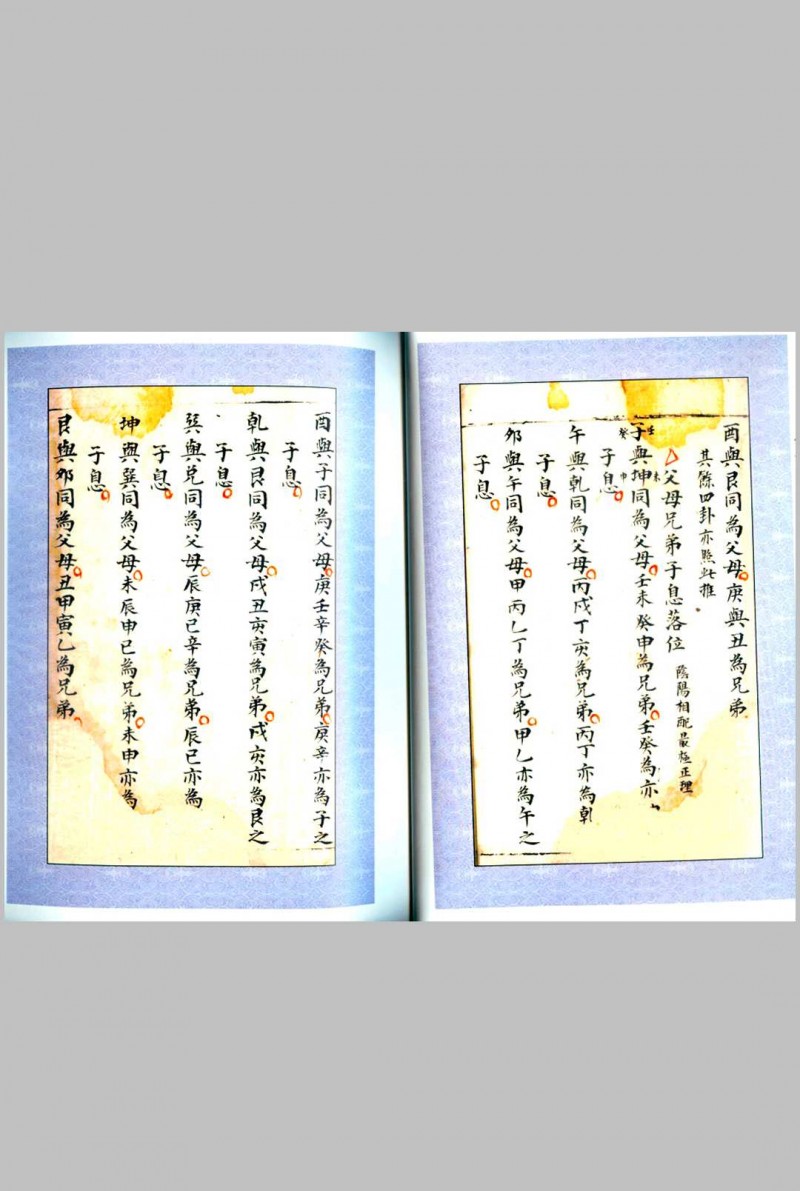 酉與艮同為父母○庚與丑為兄弟
其餘四卦亦照此推
△父母兄弟子息落位 陰陽相配最極正理
壬
癸
未
申
子與坤同為父母○壬未癸申為兄弟○壬癸為亦
子息○
午與乾同為父母○丙戌丁亥為兄弟○丙丁亦為乾
子息○
卯與午同為父母○甲丙乙丁為兄弟○甲乙亦為午之
子息○
酉與子同為父母○庚壬辛癸為兄弟○庚辛亦為子之
子息○
乾與艮同為父母○戌丑亥寅為兄弟○戌亥亦為艮之
子息○
巽與兌同為父母○辰庚巳辛為兄弟○辰巳亦為
子息○
坤與巽同為父母○未辰申巳為兄弟○未申亦為
子息○
艮與卯同為父母○丑甲寅乙為兄弟